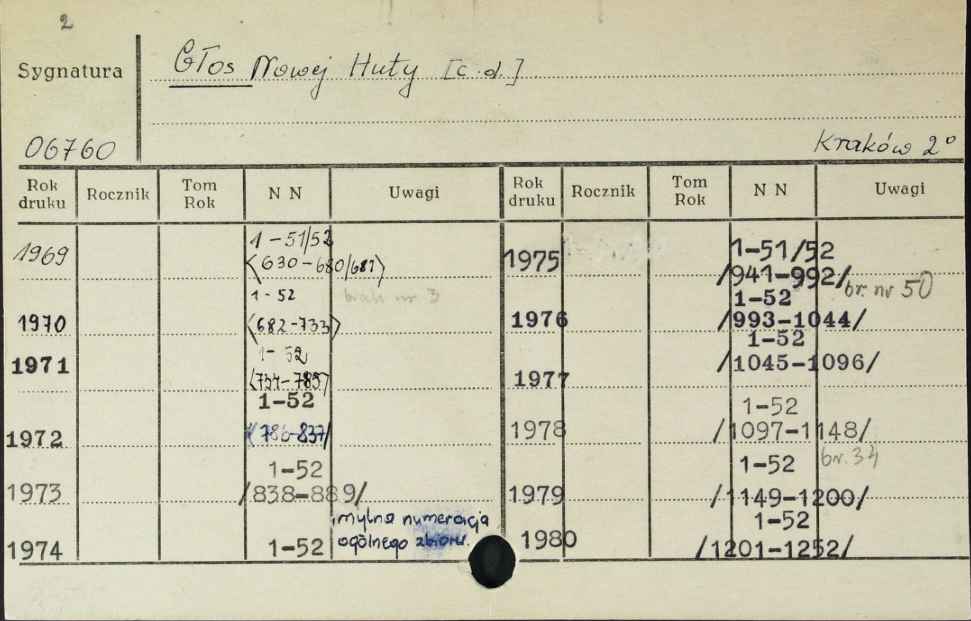 2
Sygnatura
Głos Nowej Huty [c.d.]
06760
Kraków 2°
Rok druku Rocznik Tom Rok N N Uwagi Rok druku Rocznik Tom Rok N N Uwagi
1969 1-51/52
<630-680/681>
1970 1-52 brak nr 3
<682-733>
1971 1-52
<734-785>
1972 1-52
<786-837/
1973 1-52
/838-889/
1974 1-52 mylna numeracja
ogólnego zbioru.
1975 1-51/52
/941-992/ br. nr 50
1976 1-52
/993-1044/
1977 1-52
/1045-1096/
1978 1-52
/1097-1148/
1979 1-52 br. 34
/1149-1200/
1980 1-52
/1201-1252/